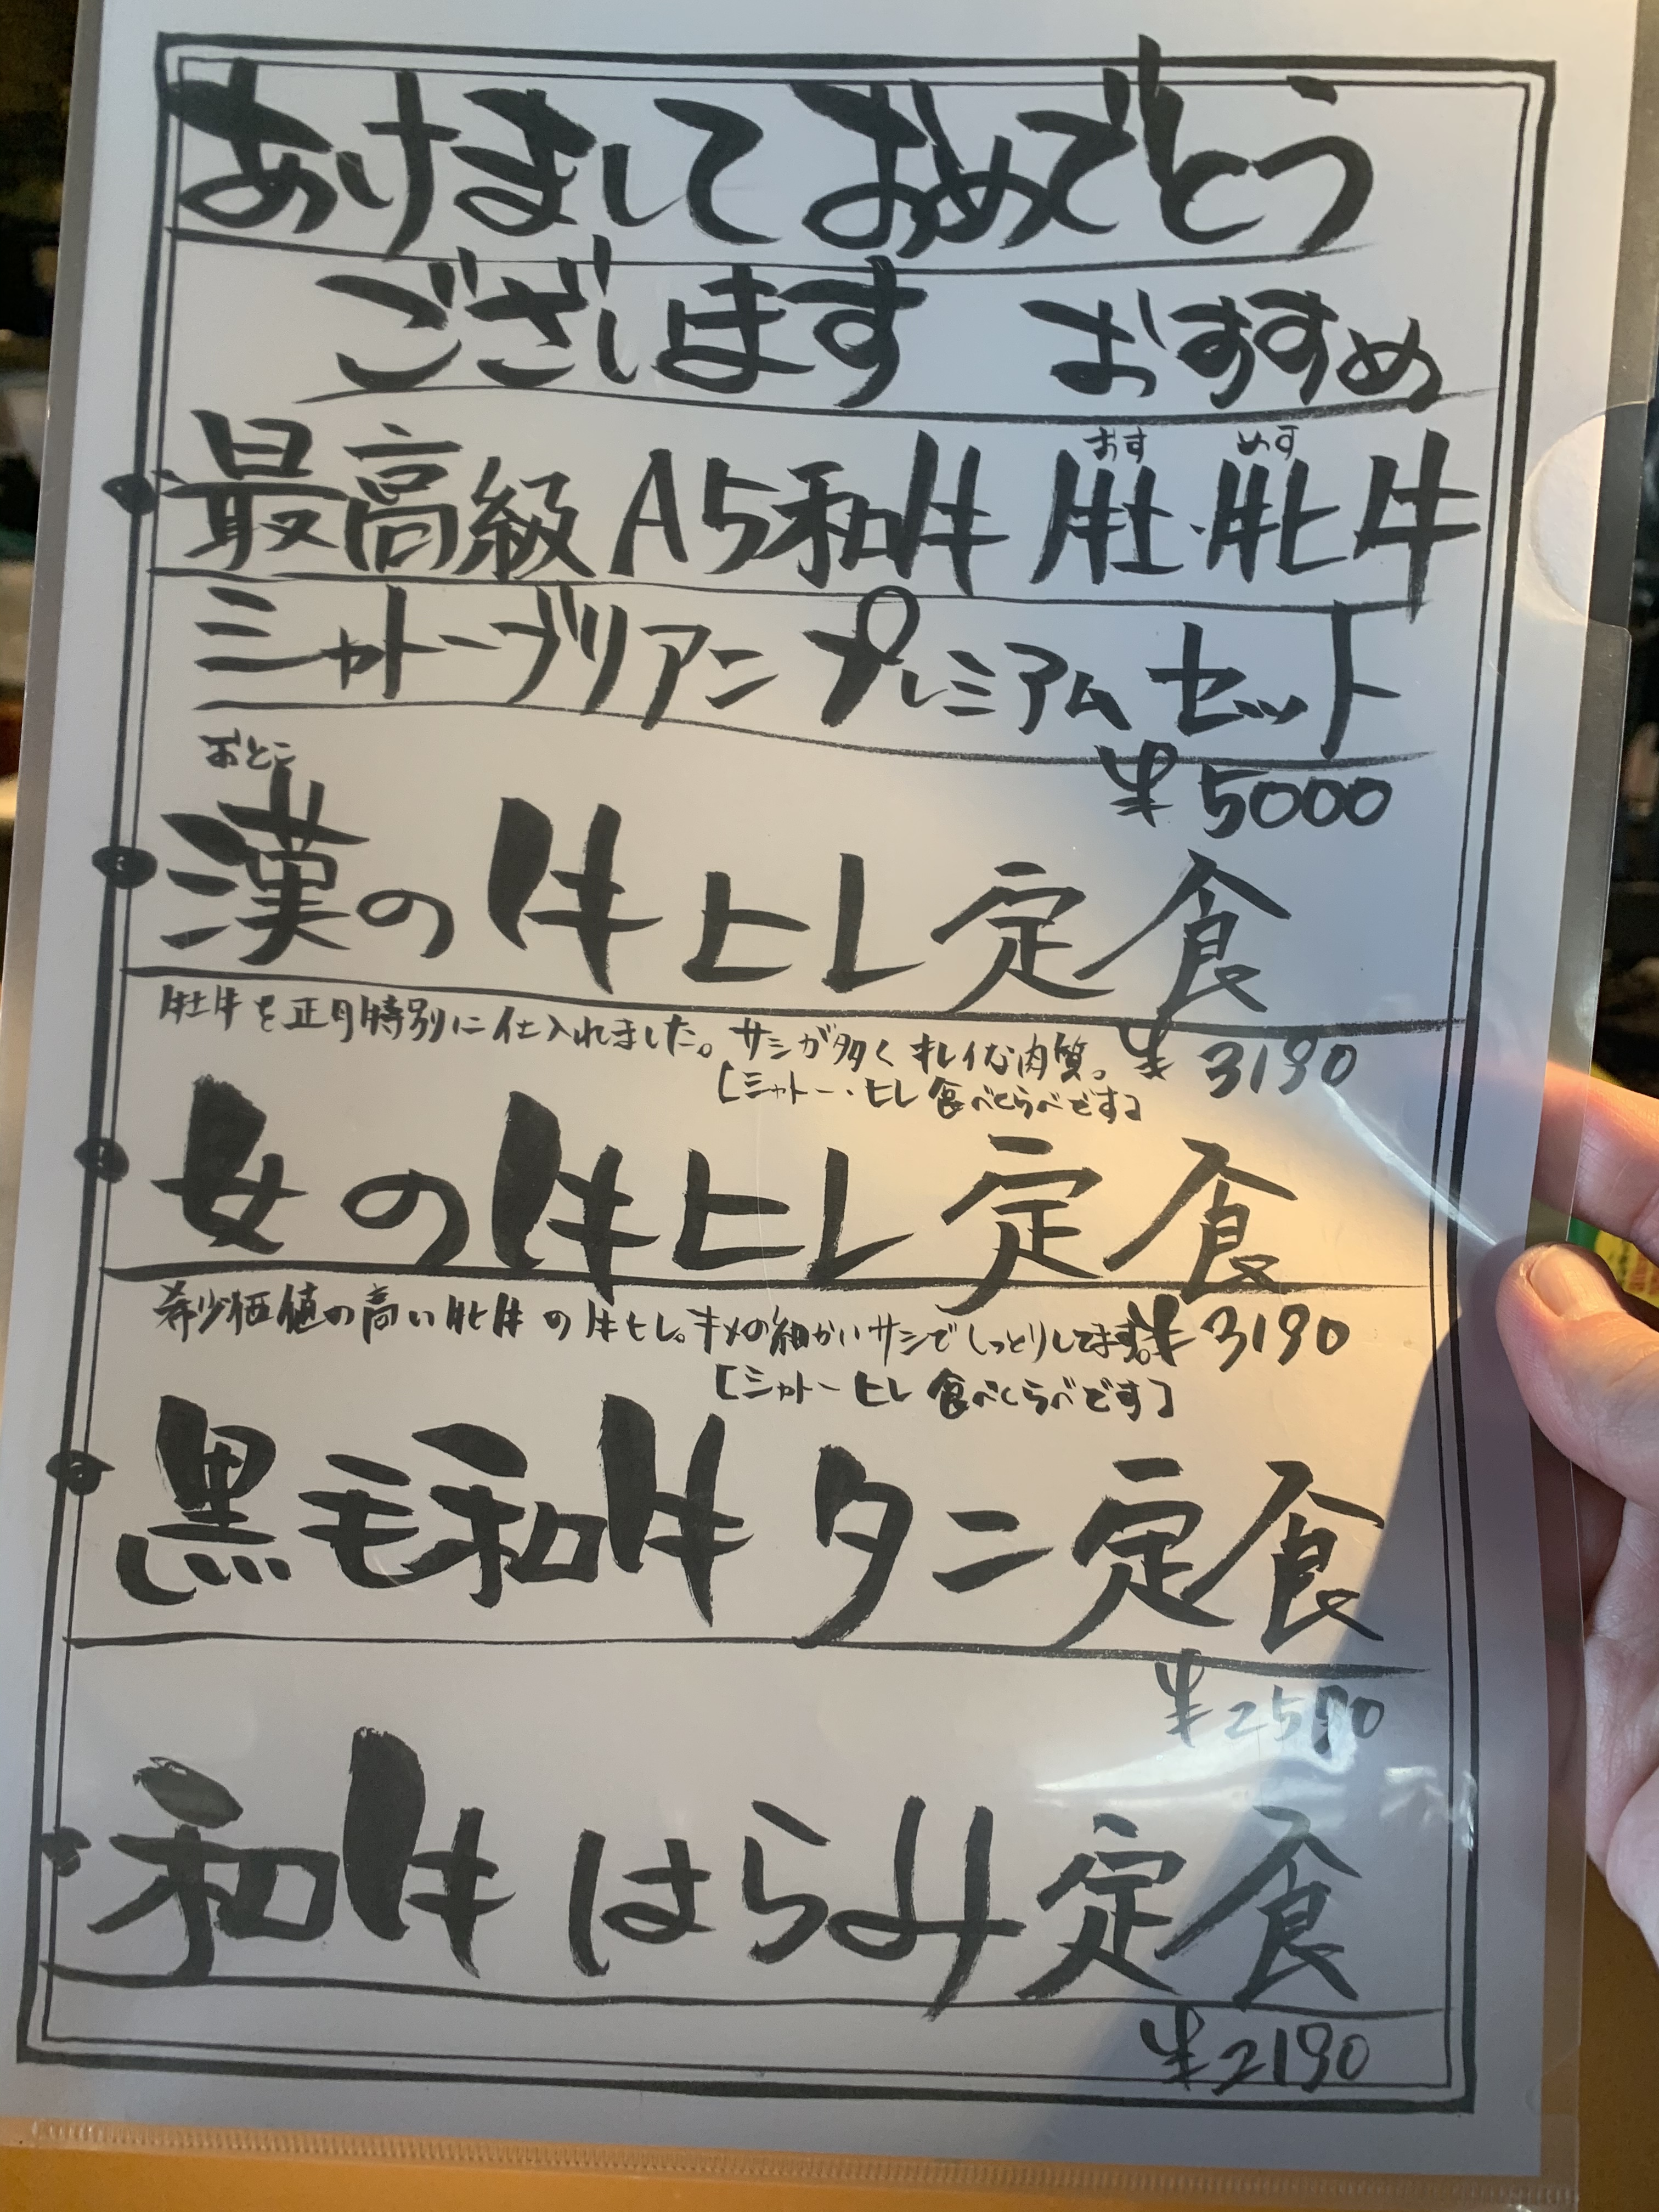 あけましておめでとう
ございます おすすめ
おす めす
最高級 A5和牛 牡・牝牛
シャトーブリアン プレミアム セット
¥5000
おとこ
漢の牛ヒレ定食
牡牛を正月特別に仕入れました。サシが多くキレイな肉質。 ¥3190
[シャトー・ヒレ 食べくらべです]
女の牛ヒレ定食
希少価値の高い牝牛の牛ヒレ。キメの細かいサシでしっとりしてます。¥3190
[シャトーヒレ 食べくらべです]
黒毛和牛 タン定食
¥2590
和牛 はらみ定食
¥2190